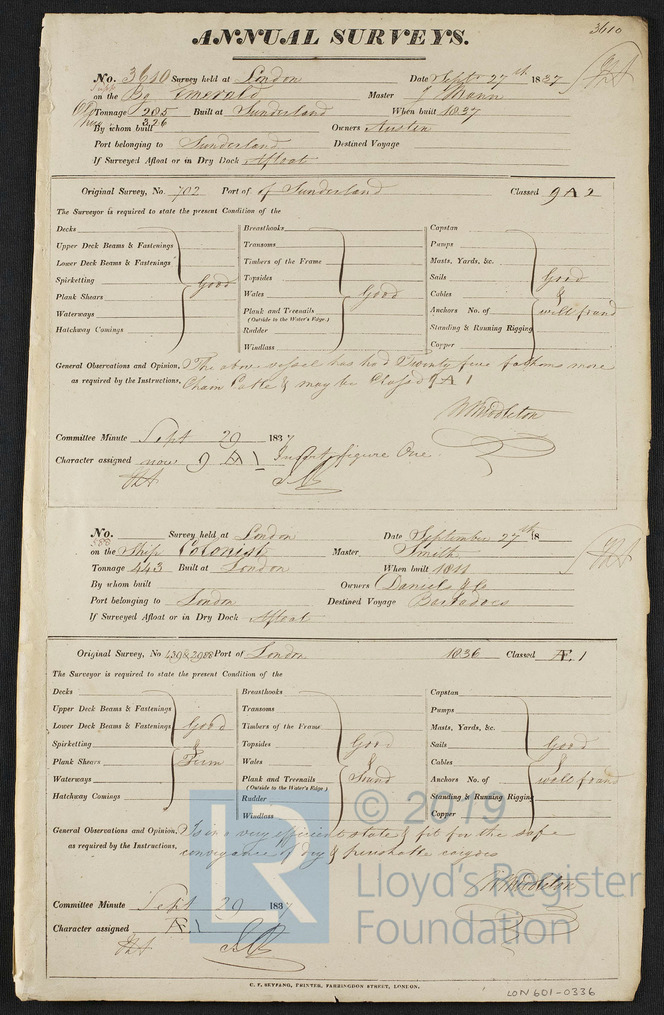 3610
ANNUAL SURVEYS.
No. 3610 Survey held at London Date Septr 27th 1837
on the Bg Emerald Master J Mann
Tonnage 285 Built at Sunderland When built 1837
326
By whom built Owners Austin
Port belonging to Sunderland Destined Voyage
If Surveyed Afloat or in Dry Dock Afloat
Original Survey, No. 702 Port of of Sunderland Classed 9 A 2
The Surveyor is required to state the present Condition of the
Decks Breasthooks Capstan
Upper Deck Beams & Fastenings Transoms Pumps
Lower Deck Beams & Fastenings Timbers of the Frame Masts, Yards, &c.
Spirketting Good Topsides Sails Good
Plank Shears Wales Good Cables &
Waterways Plank and Treenails Anchors No. of well found
(Outside to the Water's Edge.)
Hatchway Comings Rudder Standing & Running Rigging
Windlass Copper
General Observations and Opinion, The above vessel has had Twenty five fathoms more
as required by the Instructions, Chain Cable & may be Classed 9 A 1
W Middleton
Committee Minute Sept 29 1837
Character assigned now 9 A 1 Insert figure One
No. Survey held at London Date September 27th 18
on the Ship Colonist Master Smith
Tonnage 443 Built at London When built 1811
By whom built Owners Daniels & Co
Port belonging to London Destined Voyage Barbadoes
If Surveyed Afloat or in Dry Dock Afloat
Original Survey, No 439 & 2988 Port of London 1836 Classed Æ 1
The Surveyor is required to state the present Condition of the
Decks Breasthooks Capstan
Upper Deck Beams & Fastenings Transoms Pumps
Lower Deck Beams & Fastenings Good Timbers of the Frame Masts, Yards, &c.
Spirketting & Topsides Good Sails Good
Plank Shears Firm Wales & Cables &
Waterways Plank and Treenails Sound Anchors No. of well found
(Outside to the Water's Edge.)
Hatchway Comings Rudder Standing & Running Rigging
Windlass Copper
General Observations and Opinion, Is in a very efficient state & fit for the safe
as required by the Instructions, conveyance of dry & perishable cargoes
W Middleton
Committee Minute Sept 29 1837
Character assigned Æ 1
© 2019
LR
Lloyd's Register
Foundation
C. F. SEYFANG, PRINTER, FARRINGDON STREET, LONDON.
LON 601-0336